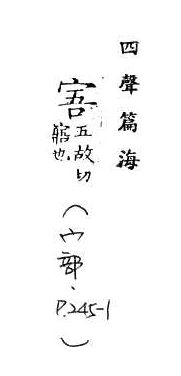 四聲篇海
𡨂五故切
寤也
(宀部、P.245-1)